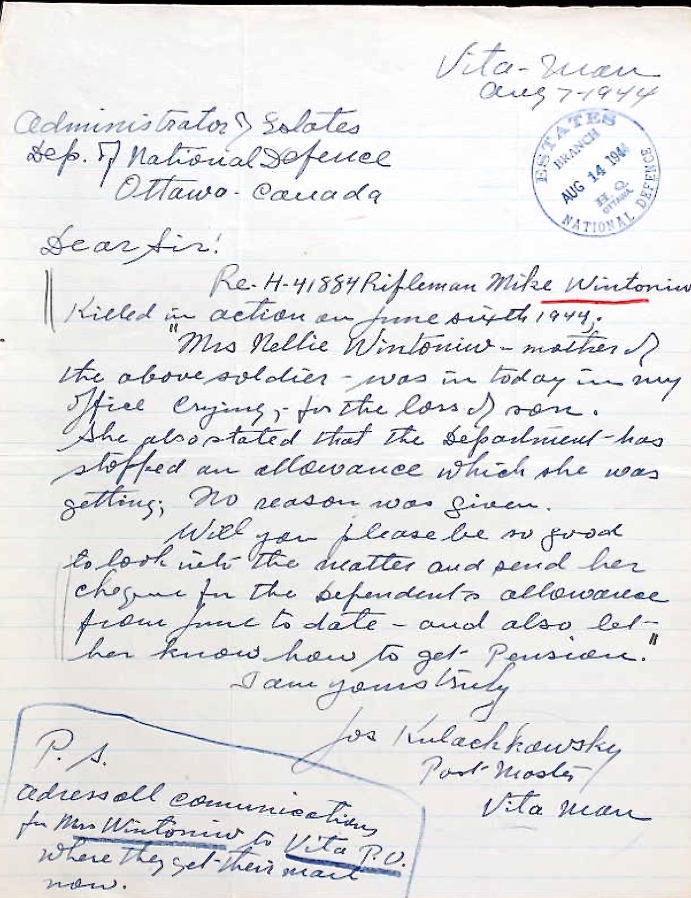 Vita - Man
Aug 7 - 1944
Administrator of Estates
Dep. of National Defence
Ottawa - Canada
ESTATES
BRANCH
AUG 14 1944
H.Q.
OTTAWA
NATIONAL DEFENCE
Dear Sir!
Re - H-41884 Rifleman Mike Wintoniw
Killed in action on June sixth 1944.
"Mrs Nellie Wintoniw - mother of
the above soldier - was in today in my
office crying, - for the loss of son.
She also stated that the Department - has
stopped an allowance which she was
getting; No reason was given.
Will you please be so good
to look into the matter and send her
cheque for the Dependents allowance
from June to date - and also let -
her know how to get - Pension."
I am yours truly
Jos Kulachkowsky
Post - Master
Vita Man
P. S.
adress all comunications
for Mrs Wintoniw to Vita P.O.
where they get their mail
now.